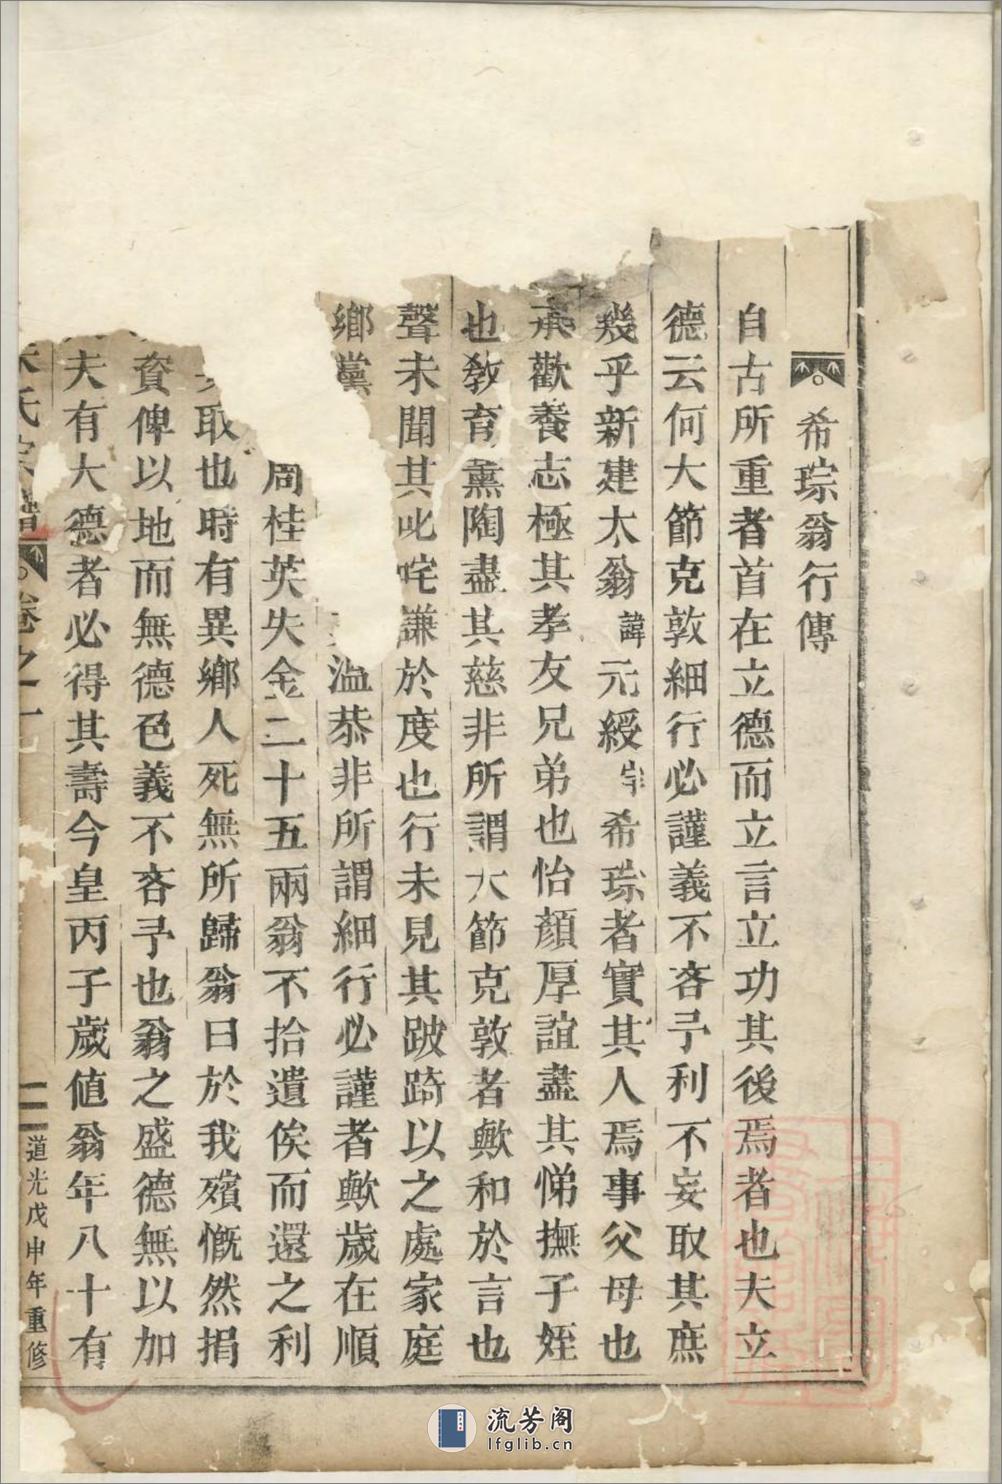 希琮翁行傳
自古所重者首在立德而立言立功其後焉者也夫立
德云何大節克敦細行必謹義不吝予利不妄取其庶
幾乎新建太翁諱元綬字希琮者實其人焉事父母也
承歡養志極其孝友兄弟也怡顏厚誼盡其悌撫子姪
也教育薰陶盡其慈非所謂大節克敦者歟和於言也
聲未聞其叱咤謙於度也行未見其跛踦以之處家庭
鄉黨溢恭非所謂細行必謹者歟歲在順
周桂英失金二十五兩翁不拾遺俟而還之利
取也時有異鄉人死無所歸翁曰於我殯慨然捐
資俾以地而無德色義不吝予也翁之盛德無以加
夫有大德者必得其壽今皇丙子歲値翁年八十有
氏宗譜 卷之一 二 道光戊申年重修
流芳阁
lfglib.cn